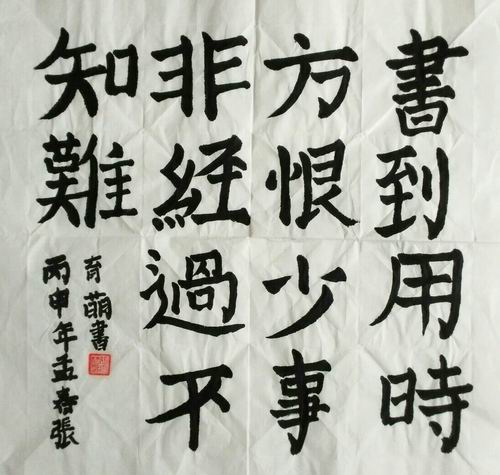 書到用時
方恨少事
非經過不
知難
丙申年孟春張
育萌書